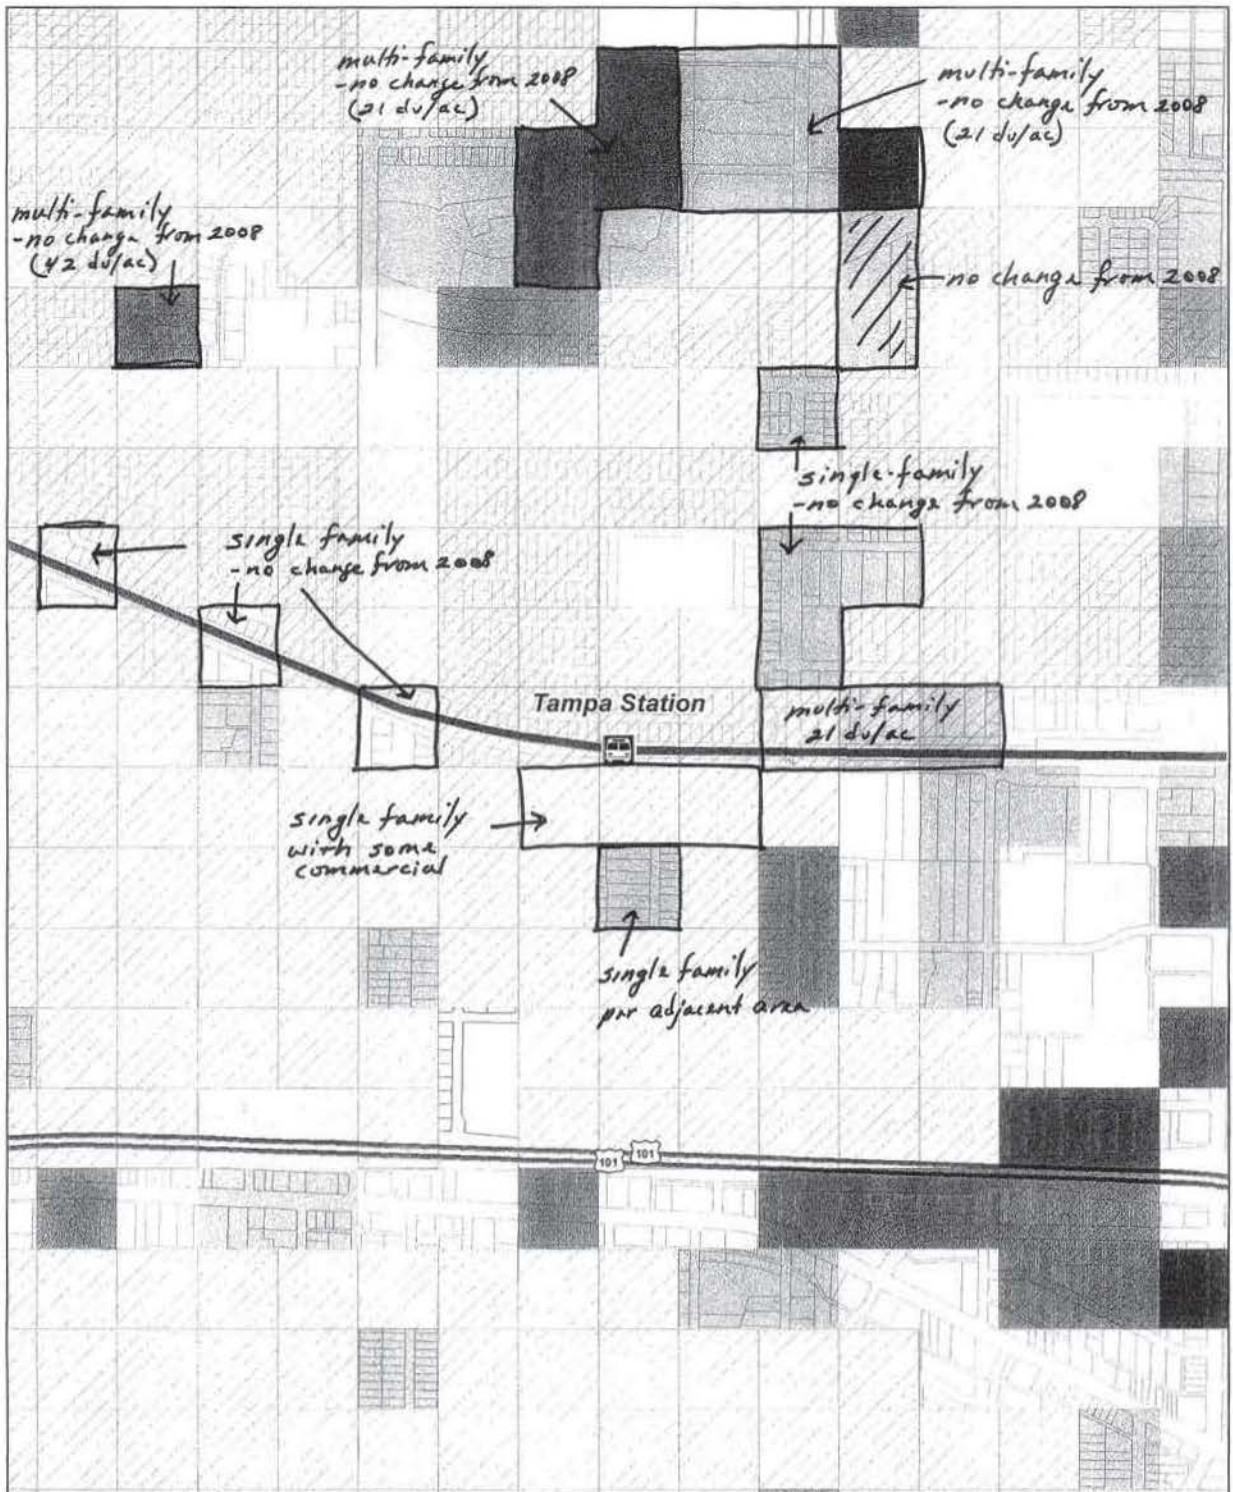 multi-family
-no change from 2008
(21 du/ac)
multi-family
-no change from 2008
(21 du/ac)
multi-family
-no change from 2008
(42 du/ac)
no change from 2008
single-family
-no change from 2008
single family
-no change from 2008
Tampa Station
multi-family
21 du/ac
single family
with some
commercial
single family
per adjacent area
101
101